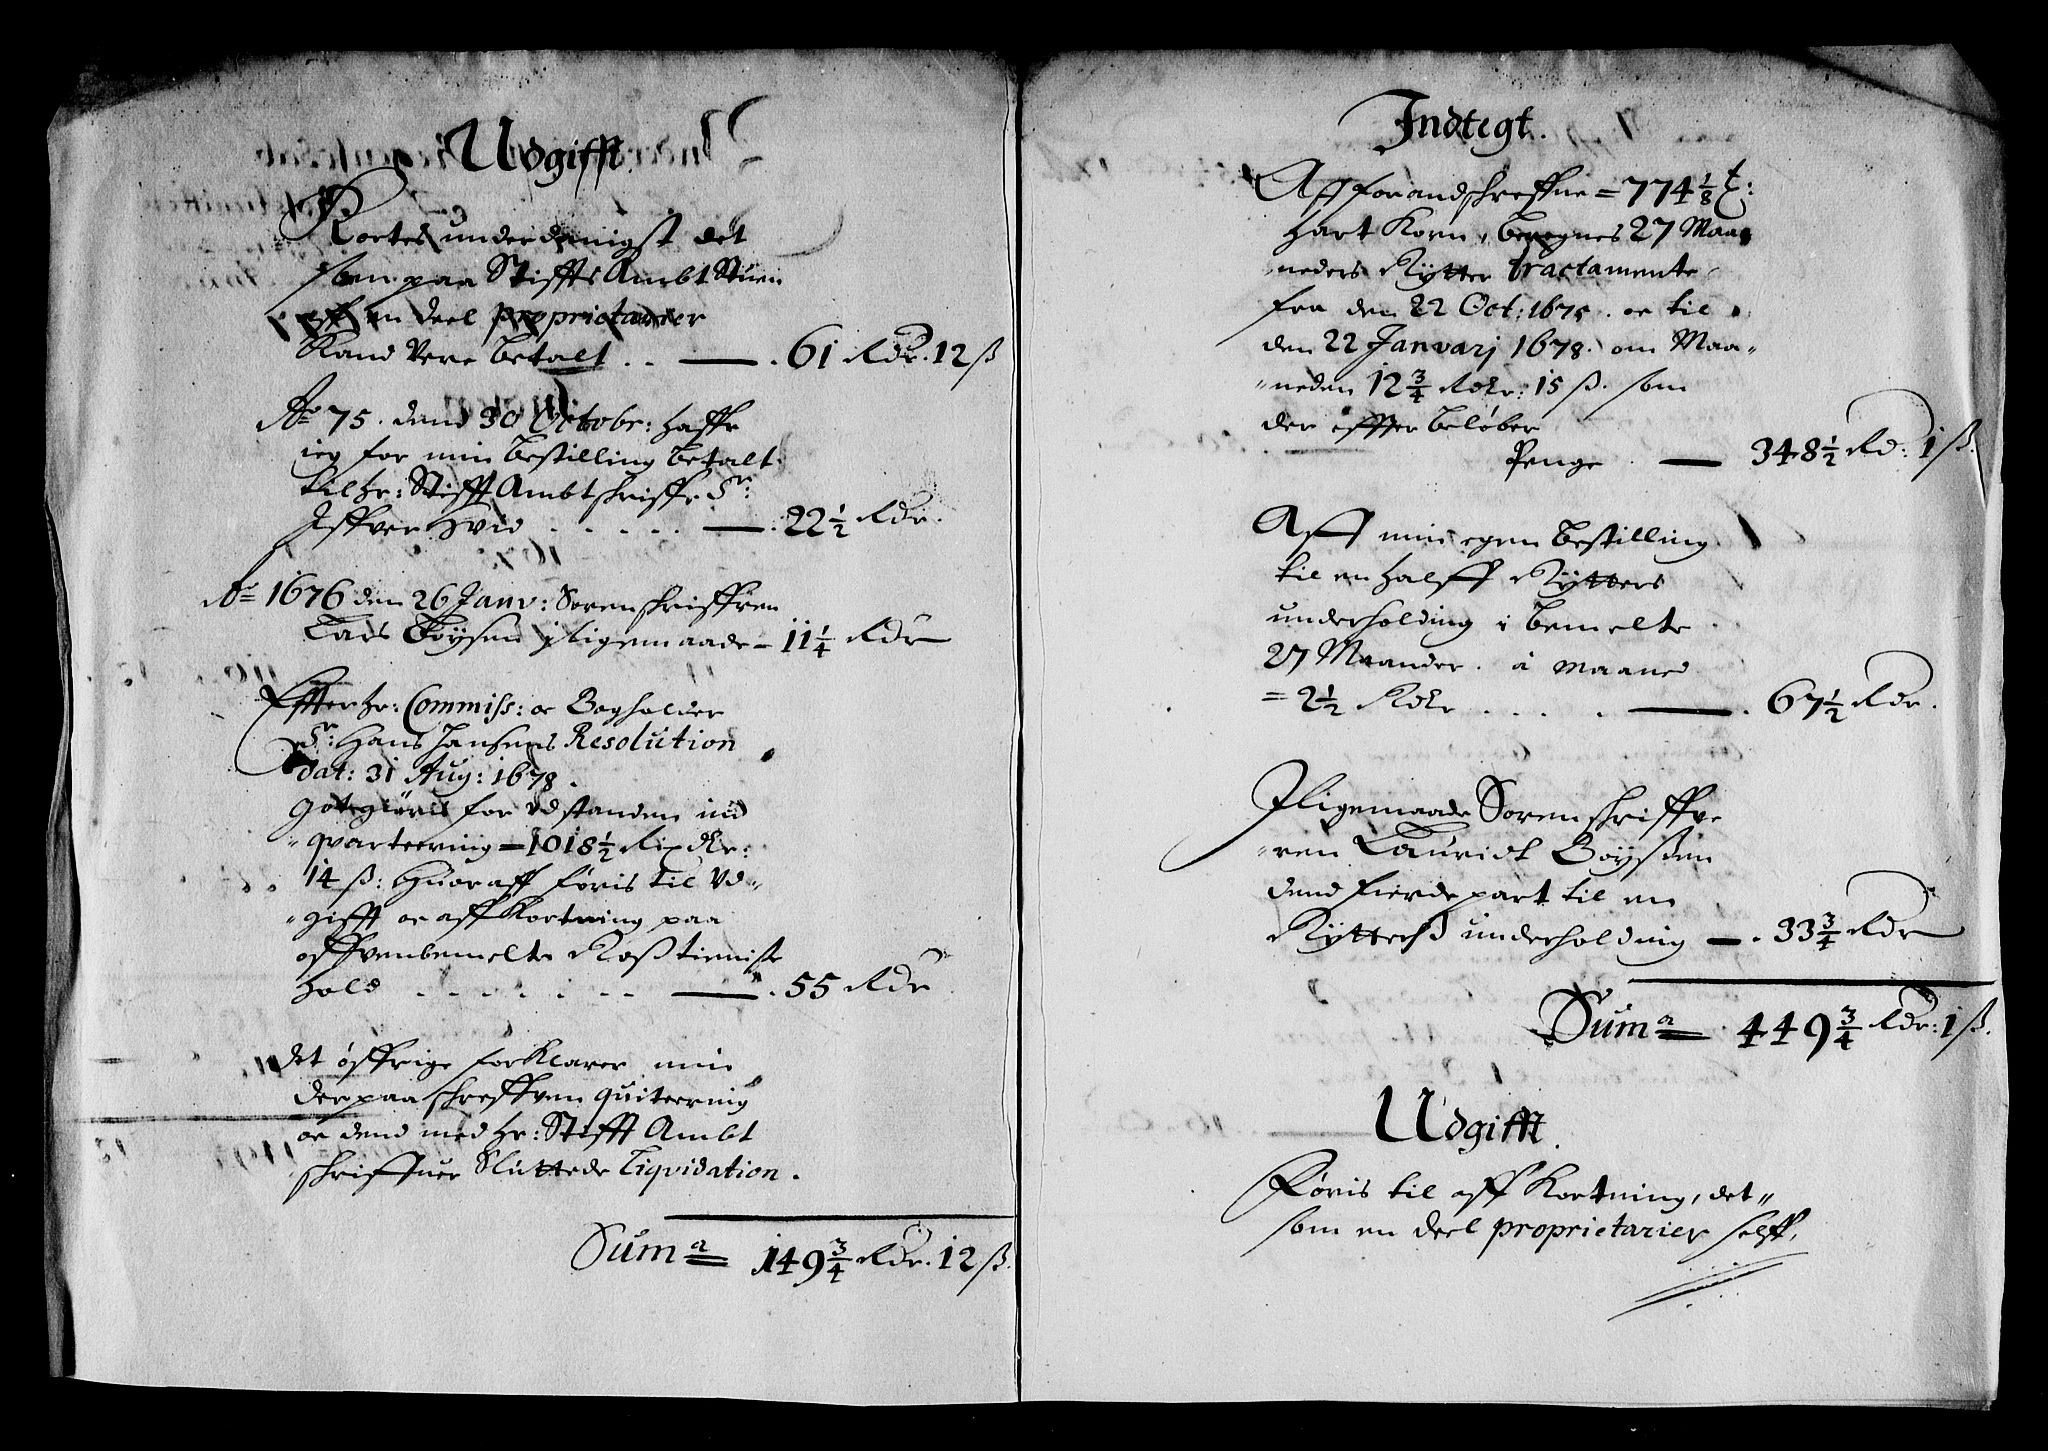 Udgifft.
Kortes underdanigst det
som paa Stiffts Ambt Stuen
aff en deel proprietarier
kand Vere betalt . . — . 61 Rdr. 12 ß
Ao 75. dend 30 Octobr: haffr
ieg for min bestilling betalt
til hr: Stifft Ambtschriffr Sr:
Iffver Hvid . . . . . — . 22 1/2 Rdr.
Ao 1676 den 26 Janv: Sorenschriffren
Lars Boÿsen iligemaade – 11 1/4 Rdr
Effter hr: Commiss: oc Bogholder
Sr: Hans Jansens Resolution
dat: 31 Aug: 1678.
godtgiøris for Vdstanden ind
quarteering — 1018 1/2 Rix dlr:
14 ß: Huoraff føris til Vd„
„gifft oc aff Kortning paa
offvenbemelte Roßtieniste
hold . . . . . . — . 55 Rdr
det øffrige forklarer min
derpaa schreffven quiteering
oc dend med hr: Stifft Ambt
schriffuer Sluttede Liqvidation.
Suma 149 3/4 Rdr. 12 ß.
Indtegt.
Aff forandschreffne = 774 1/8 t:
hart Korn, beregnes 27 Maa
„neders Rÿtter tractamente
fra den 22 Oct: 1675. oc til
den 22 Januarj 1678. om Maa„
„neden 12 3/4 Rdlr: 15 ß. som
der effter beløber
Penge . — 348 1/2 Rd: 1 ß.
Aff min egen bestilling
til en halff Rÿtters
underholding i bemelte
27 Maander. á maaned
= 2 1/2 Rdlr . . . . — . 67 1/2 Rdr.
Iligemaade Sorenschriffve
„ren Lauridt Boÿsen
dend fierde part til en
Rÿtters underholding — . 33 3/4 Rdr
Suma . 449 3/4 Rdr: 1 ß.
Udgifft.
Føris til aff Kortning, det„
som en deel proprietarier selff,